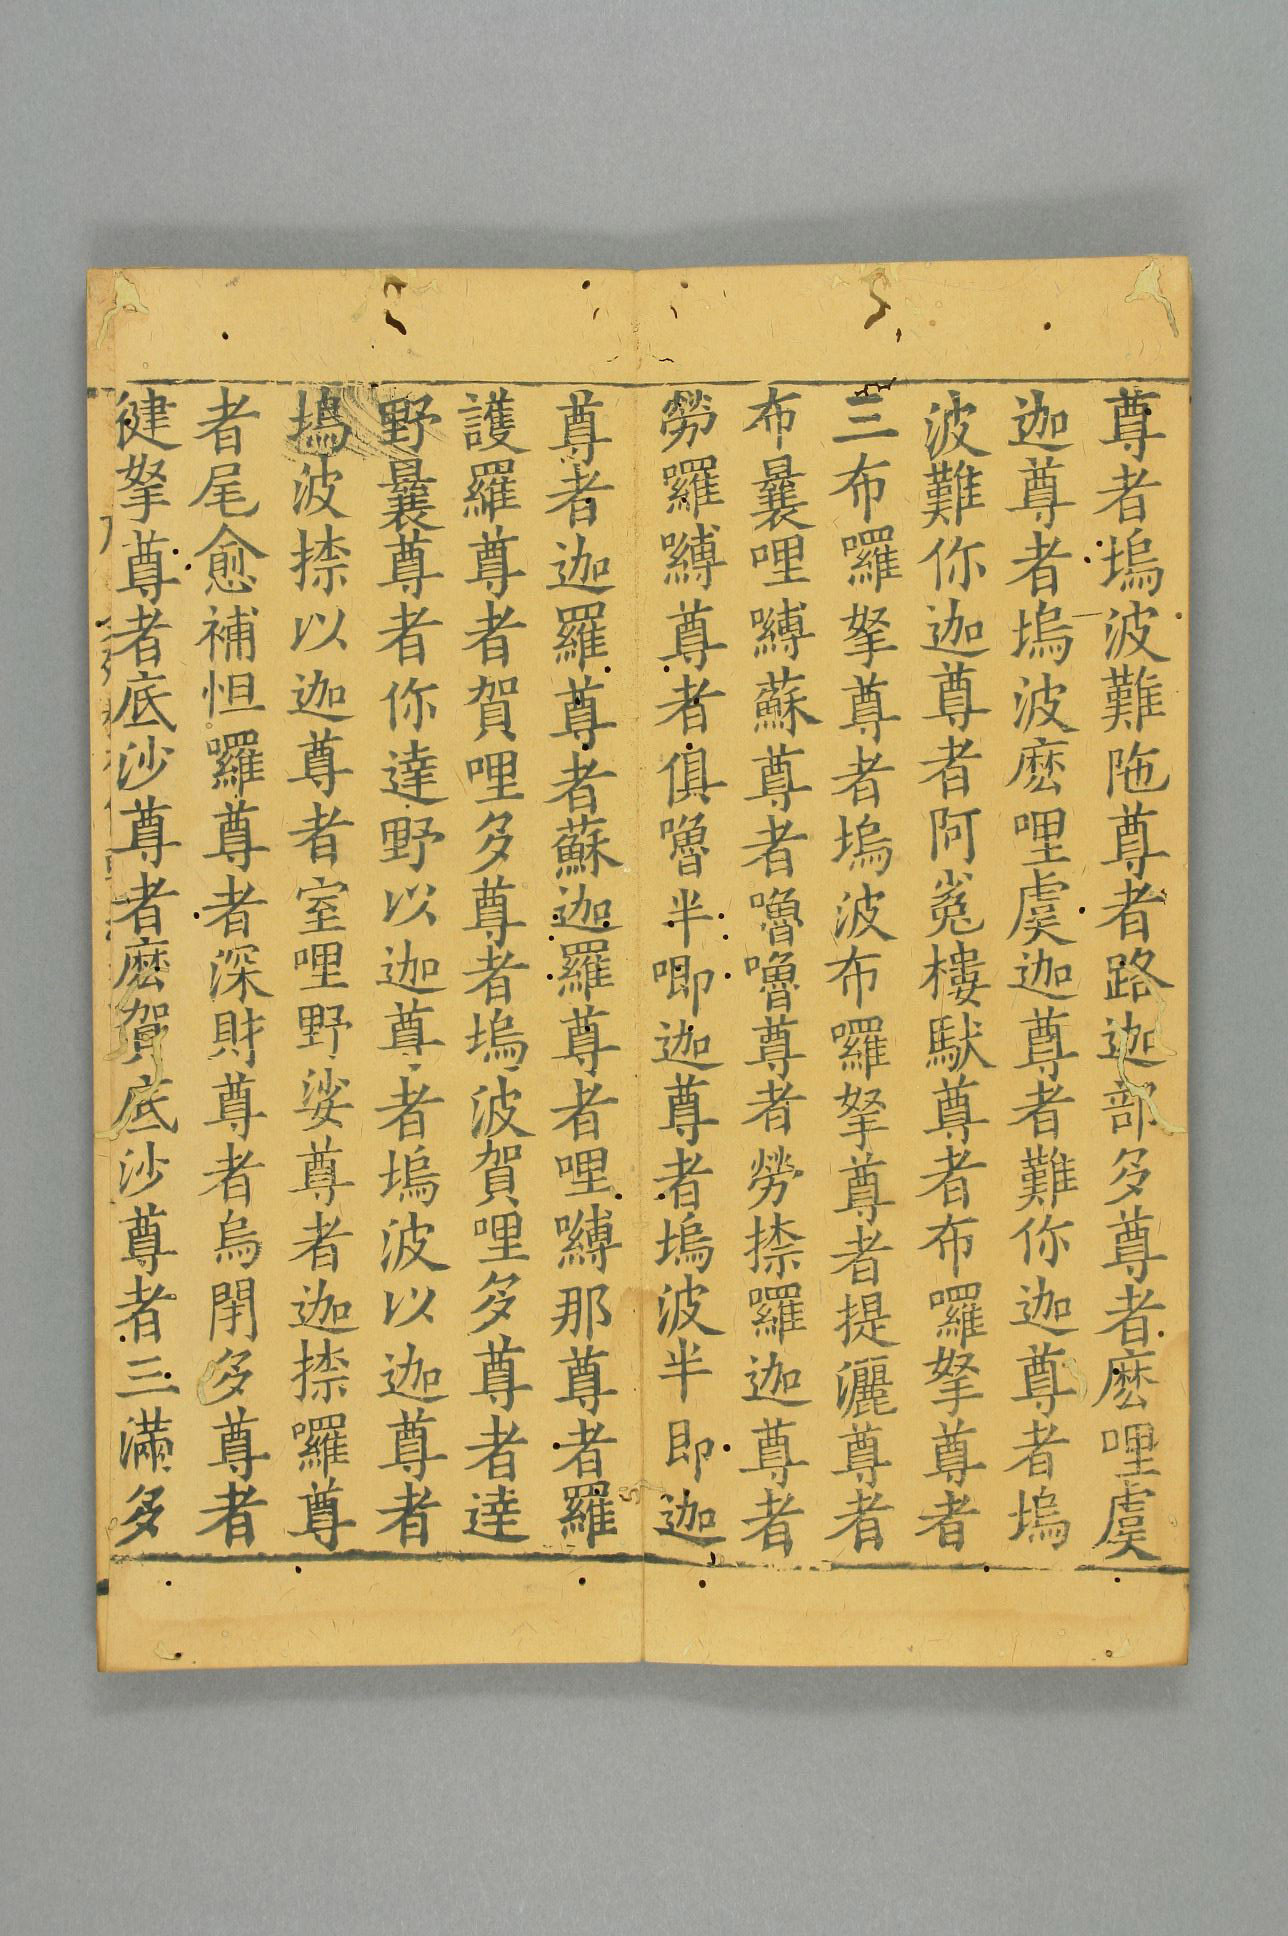 尊者塢波難陁尊者路迦部多尊者麽哩虞
迦尊者塢波麽哩虞迦尊者難你迦尊者塢
波難你迦尊者阿㝹樓馱尊者布囉拏尊者
三布囉拏尊者塢波布囉拏尊者提灑尊者
布曩哩嚩蘇尊者嚕嚕尊者勞捺羅迦尊者
勞羅嚩尊者俱嚕半唧迦尊者塢波半即迦
尊者迦羅尊者蘇迦羅尊者哩嚩那尊者羅
護羅尊者賀哩多尊者塢波賀哩多尊者達
野曩尊者你達野以迦尊者塢波以迦尊者
塢波捺以迦尊者室哩野娑尊者迦捺囉尊
者尾愈補怛囉尊者深財尊者烏閈多尊者
健拏尊者底沙尊者麽賀底沙尊者三滿多